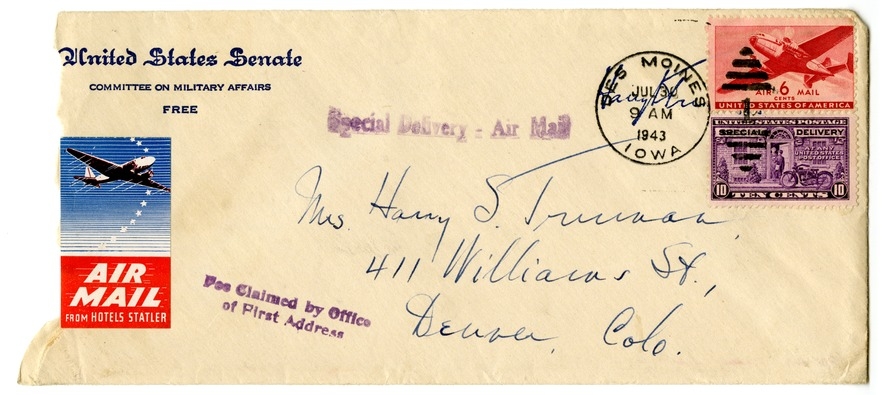 United States Senate
COMMITTEE ON MILITARY AFFAIRS
FREE
Special Delivery - Air Mail
DES MOINES
JUL 30
9 AM
1943
IOWA
AIR 6 MAIL
CENTS
UNITED STATES OF AMERICA
UNITED STATES POSTAGE
SPECIAL DELIVERY
AT ANY
UNITED STATES
POST OFFICE
10 TEN CENTS 10
Mrs. Harry S. Truman,
411 Williams St.,
Denver, Colo.
AIR
MAIL
FROM HOTELS STATLER
Fee Claimed by Office
of First Address